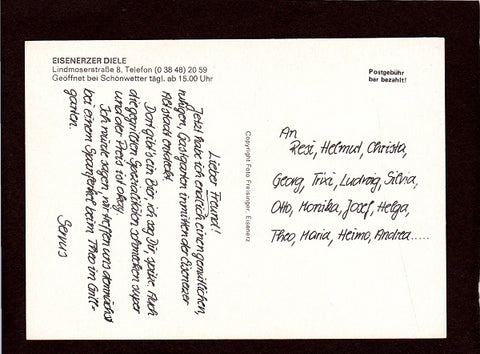 EISENERZER DIELE
Lindmoserstraße 8, Telefon (0 38 48) 20 59
Geöffnet bei Schönwetter tägl. ab 15.00 Uhr
Postgebühr
bar bezahlt!
Lieber Freund!
Jetzt habe ich endlich einen gemütlichen,
ruhigen, Gastgarten inmitten der Eisenerzer
Altstadt entdeckt.
Dort gibt's ein Bier, ich sag Dir, spitze. Auch
die gegrillten Spezialitäten schmecken super
und der Preis ist okey.
Ich würde sagen, wir treffen uns demnächst
bei einem Spanferkel beim Theo im Grill-
garten.
Servus
Copyright Foto Freisinger, Eisenerz
An
Resi, Helmut, Christa,
Georg, Trixi, Ludwig, Silvia,
Otto, Monika, Josef, Helga,
Theo, Maria, Heimo, Andrea.....